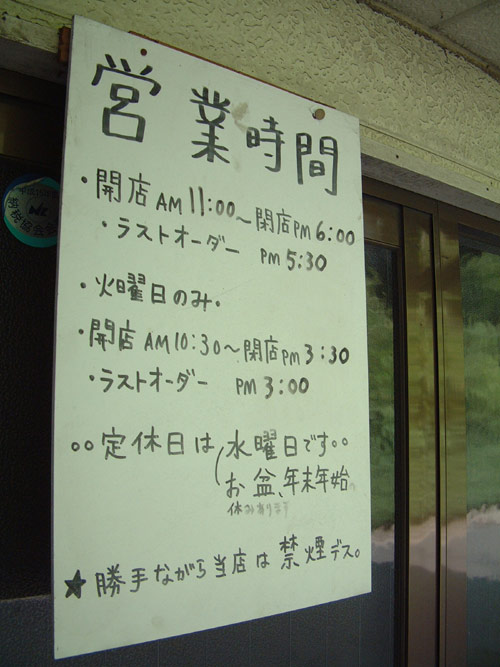 営業時間
・開店 AM 11:00～閉店 PM 6:00
・ラストオーダー PM 5:30
・火曜日のみ・
・開店 AM 10:30～閉店 PM 3:30
・ラストオーダー PM 3:00
○○定休日は水曜日です○○
(お盆、年末年始の
休みあります
★勝手ながら当店は禁煙デス。